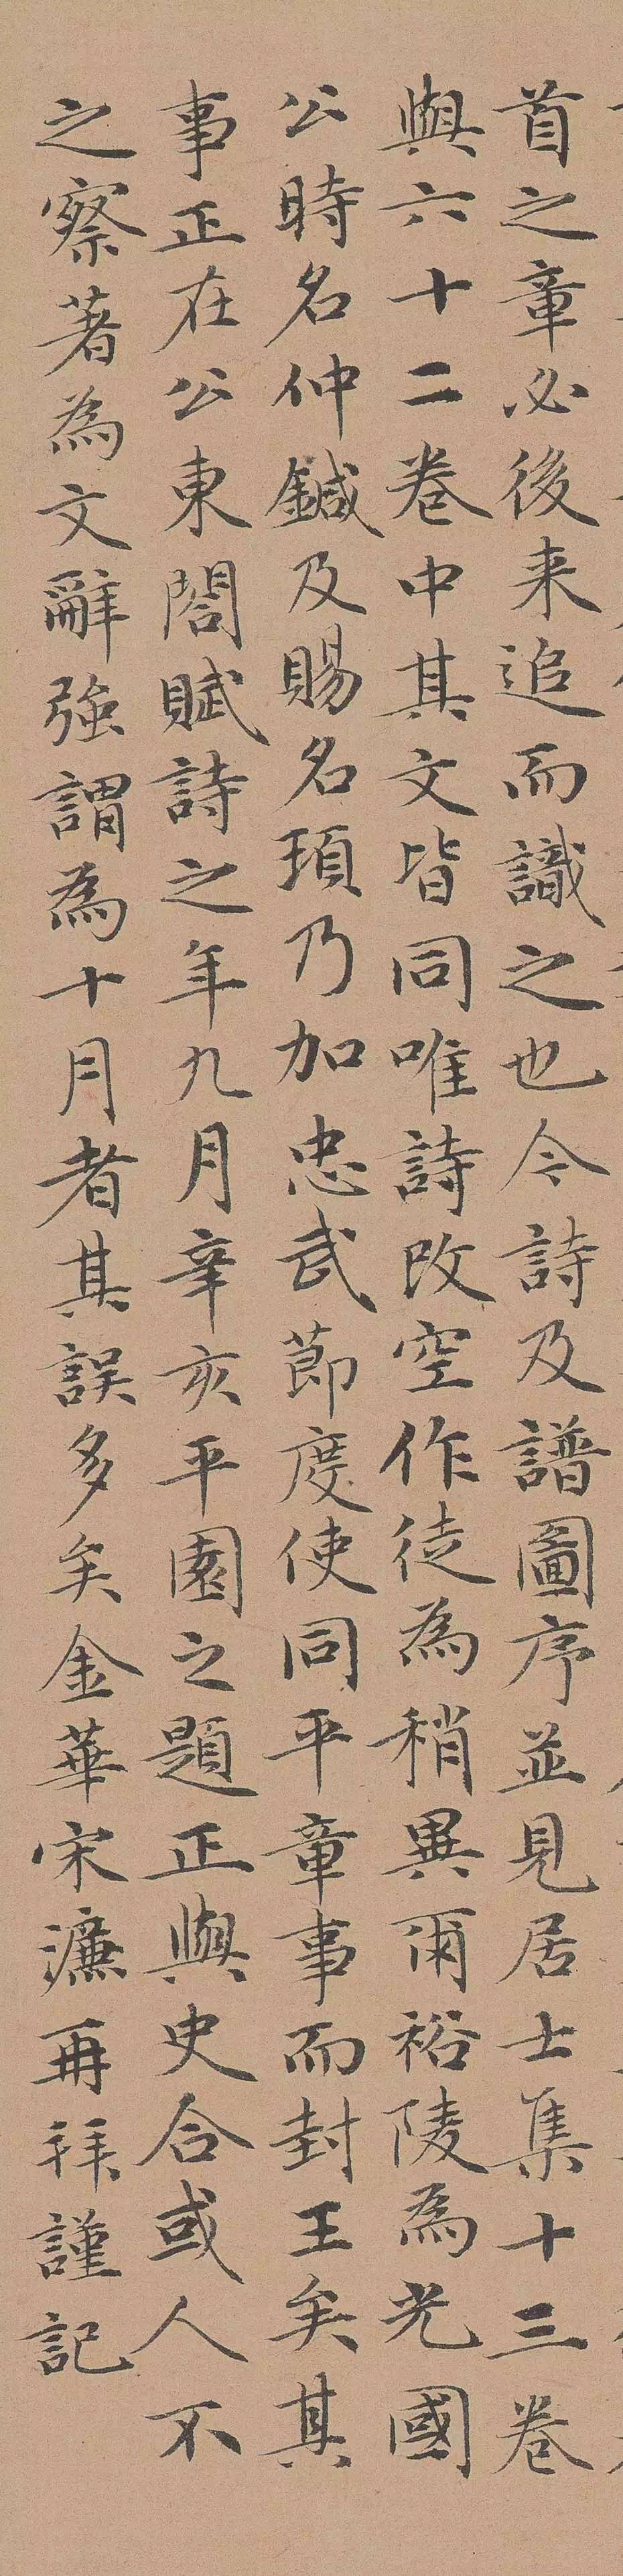 首之章必後来追而識之也今詩及譜圖序並見居士集十三卷
與六十二卷中其文皆同唯詩改空作徒為稍異爾裕陵為光國
公時名仲鍼及賜名頊乃加忠武節度使同平章事而封王矣其
事正在公東閤賦詩之年九月辛亥平園之題正與史合或人不
之察著為文辭強謂為十月者其誤多矣金華宋濂再拜謹記